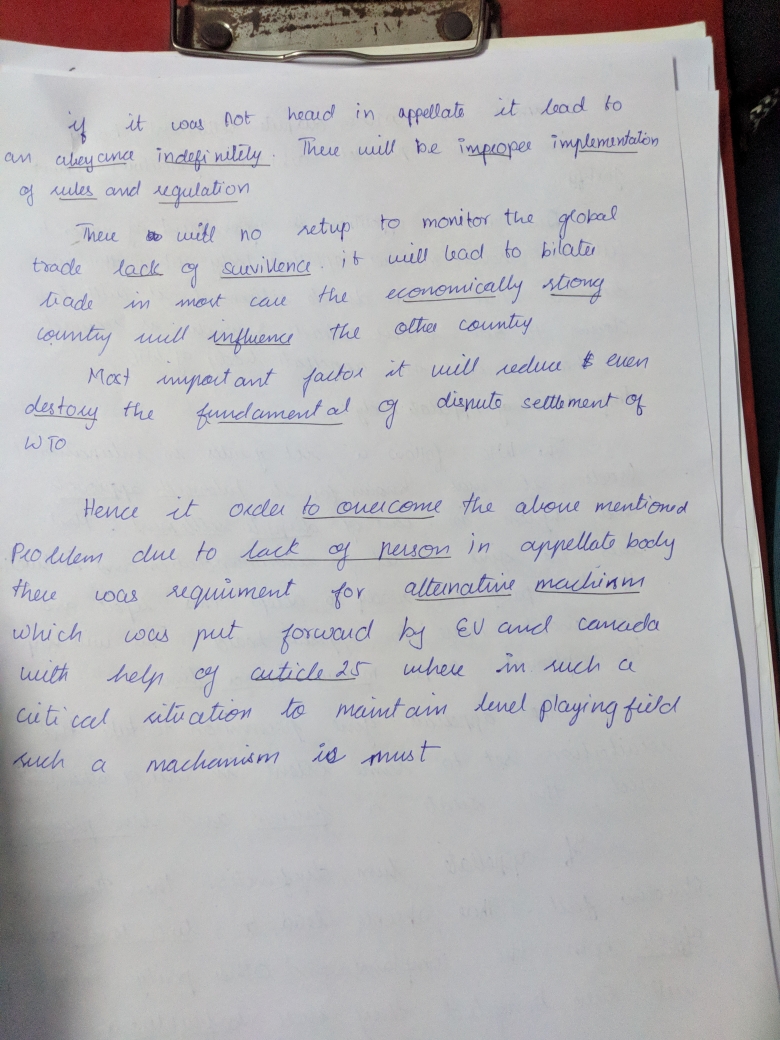 if it was not heard in appellate it lead to
an abeyance indefinitily. There will be improper implementation
of rules and regulation
There will no setup to monitor the global
trade lack of survillence. it will lead to bilater
trade in most case the economically strong
country will influence the other country
Most important factor it will reduce & even
destory the fundamental of dispute settlement of
WTO
Hence it order to overcome the above mentioned
Problem due to lack of person in appellate body
there was requirment for alternative machinsm
which was put forward by EU and canada
with help of article 25 where in such a
critical situation to maintain level playing field
such a machanism is must